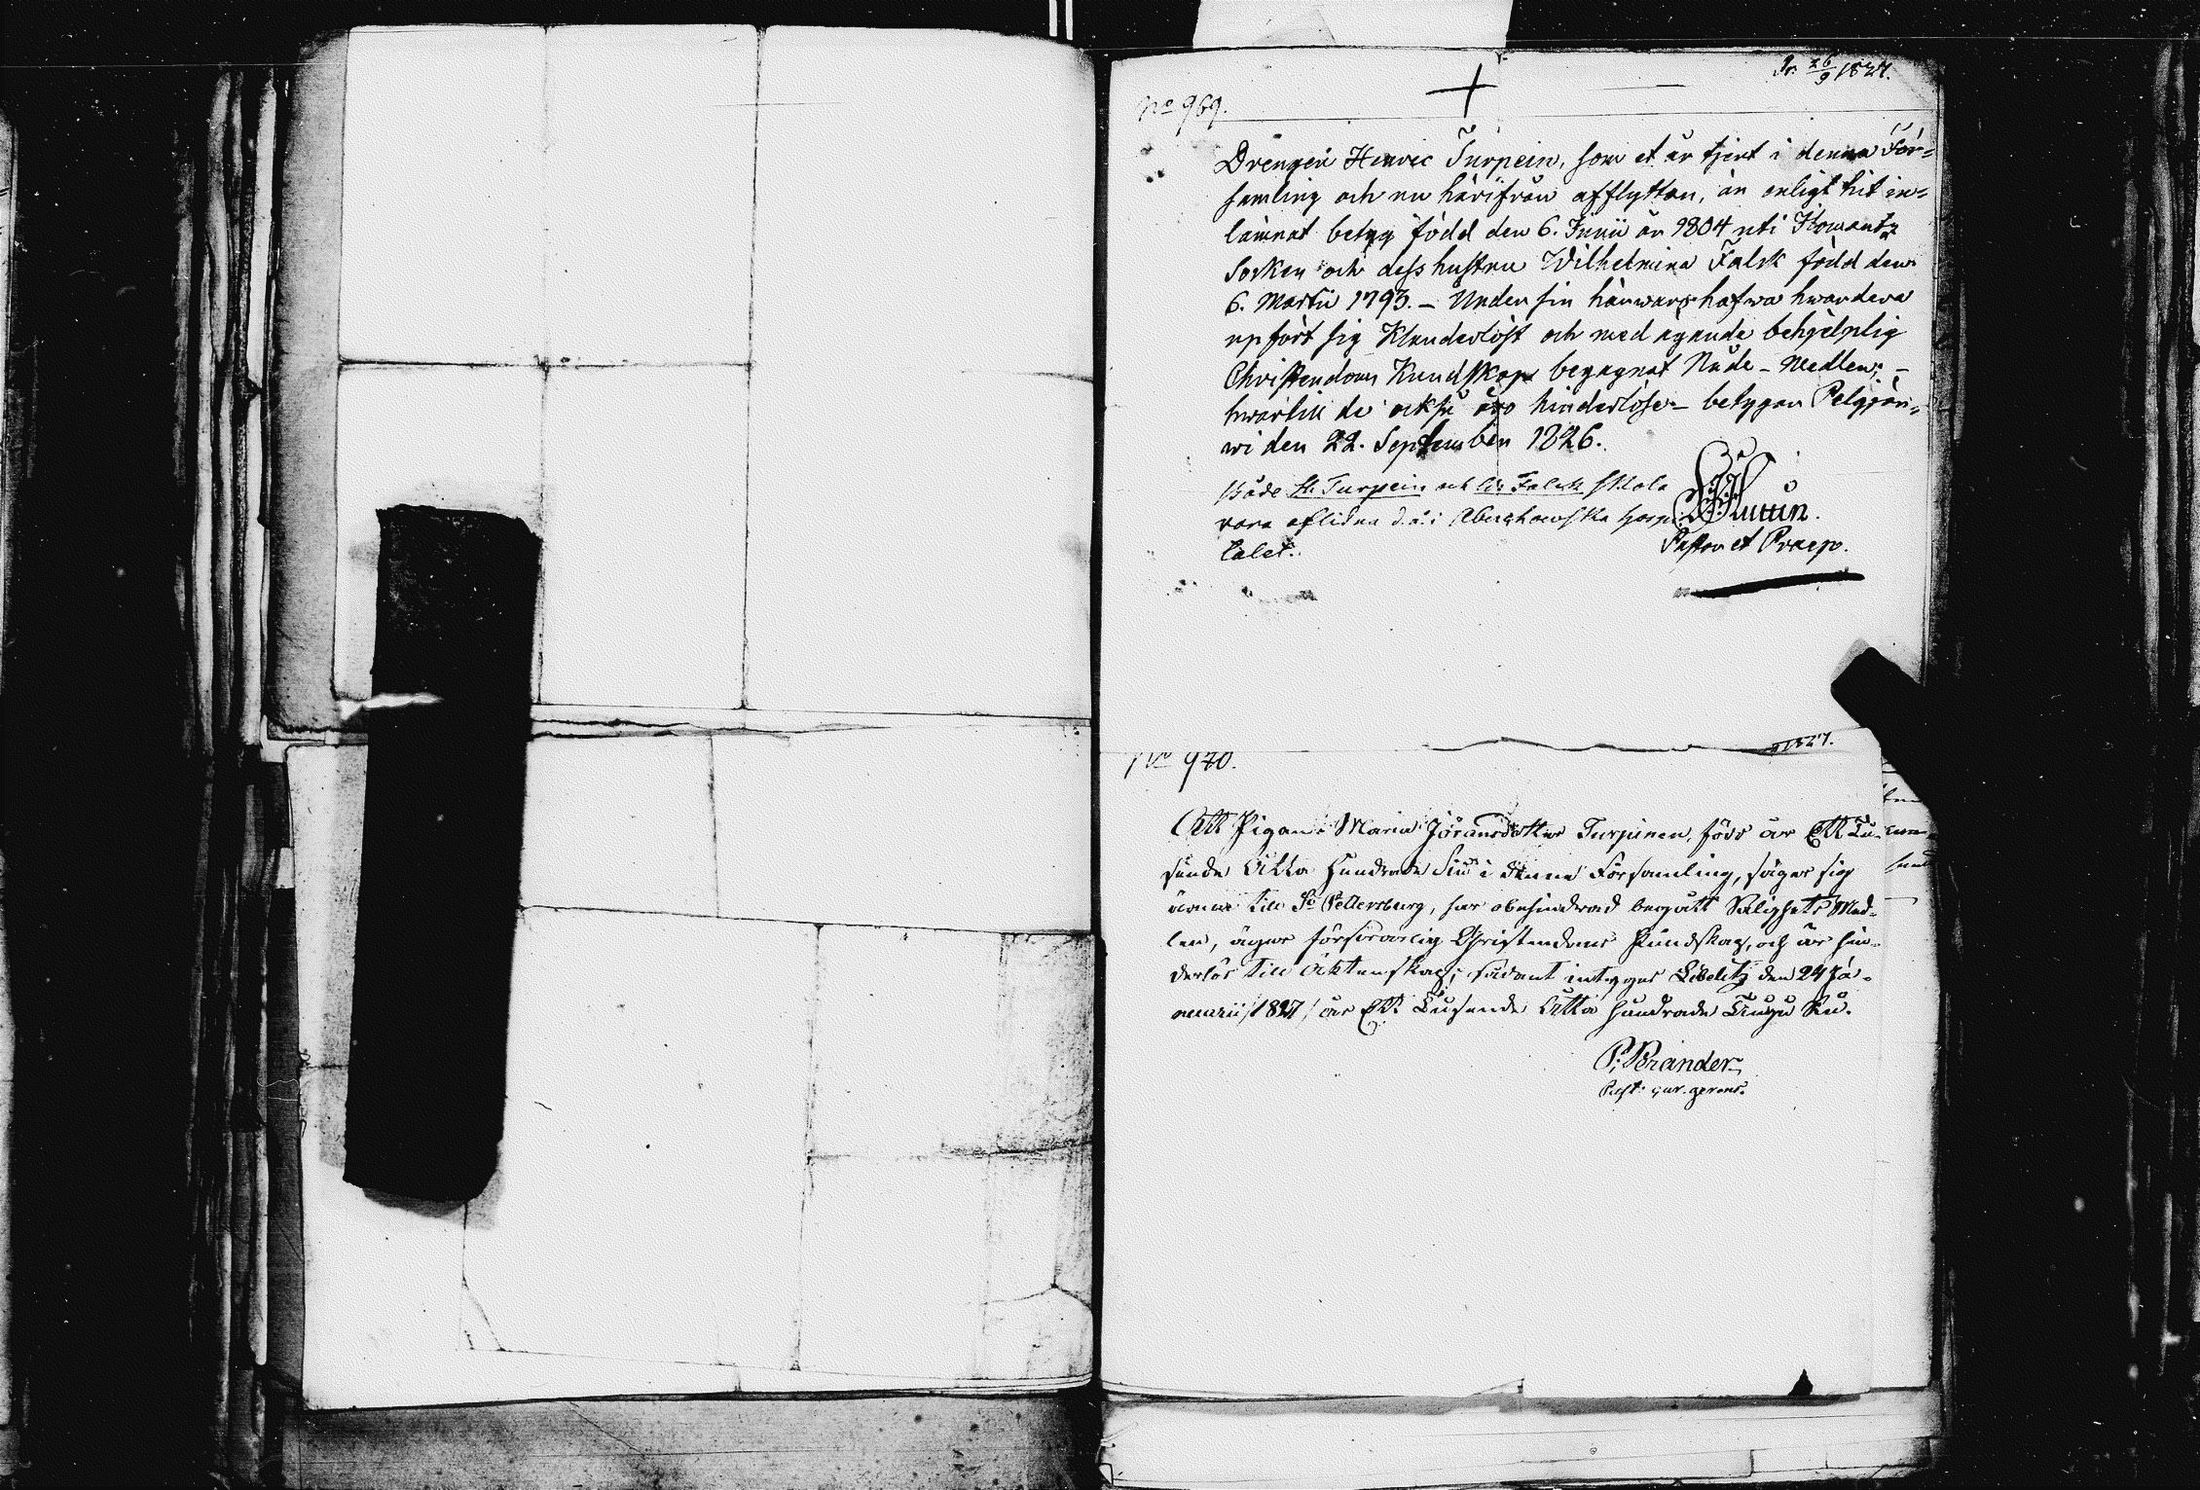 Pr. 26/9 1827.
No 969.
Drengen Henric Turpein, som et år tjent i denna För=
samling och nu härifrån afflyttar, är enligt hit in=
lämnat betyg född den 6. Junii år 1804 uti Ilomants
Socken och dess hustru Wilhelmina Falck född den
6. Martii 1793. – Under sin härwaro hafwa hwardera
upfört sig Klanderlöst och med ägande behjelplig
Christendoms Kundskap begagnat Nåde-Medlen; –
hwartill de också äro hinderlöse – betygar Pelgjär=
wi den 22. September 1826.
Både H. Turpein och W. Falck skola
vara aflidna d.ä. i Abuchowska hospi
talet.
Pastor et Praep.
1827.
No 970.
Att Pigan Maria Jöransdotter Turpinen, född år Ett Tu-
sende Åtta Hundrade Siu i denna Församling, säger sig
ärna till St Pettersburg, har obehindrad begått Salighets Med-
len, äger försvarlig Christendoms Kundskap, och är hin-
derlös till äktenskap; sådant intygar Libelitz den 24 Ja-
nuarii /1827/ år Ett Tusende Åtta hundrade Tiugu Siu.
P. Perander
Past: cur. gerens.